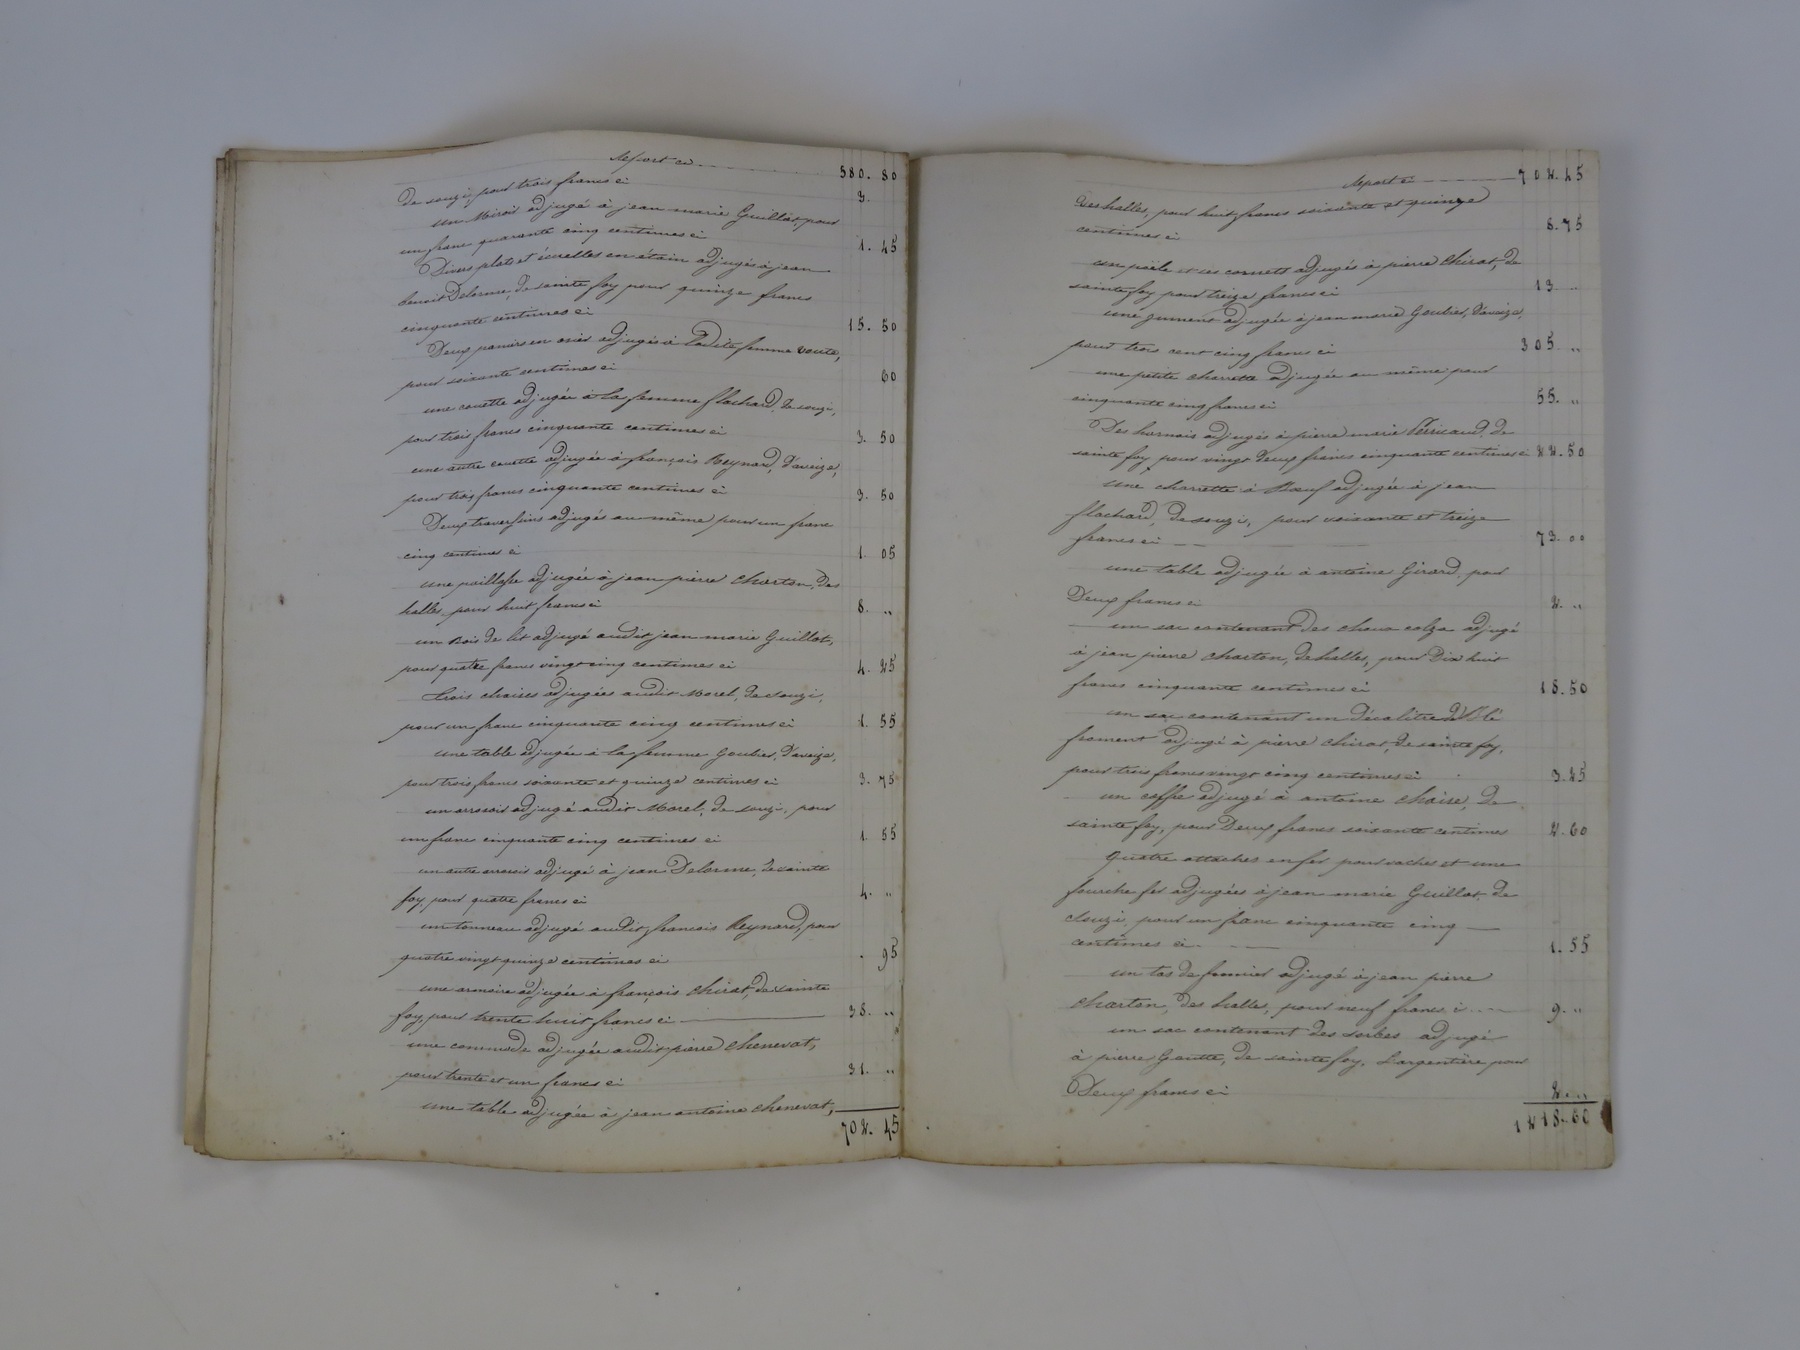 Report ci 580. 80
de souzi, pour trois francs ci 3.
un Miroir adjugé à jean marie Guillot, pour
un franc quarante cinq centimes ci 1. 45
Divers plats et écuelles en étain adjugés à jean
benoit Delorme, de sainte foy pour quinze francs
cinquante centimes ci 15. 50
Deux paniers en osier adjugés à ladite femme
pour soixante centimes ci 60
une couette adjugée à la femme flachard, de souzi,
pour trois francs cinquante centimes ci 3. 50
une autre couette adjugée à françois Reynard, d'aveize,
pour trois francs cinquante centimes ci 3. 50
Deux traversins adjugés au même pour un franc
cinq centimes ci 1. 05
une paillasse adjugée à jean pierre charton, des
halles, pour huit francs ci 8. "
un bois de lit adjugé audit jean marie Guillot,
pour quatre francs vingt cinq centimes ci 4. 25
trois chaises adjugées audit Morel, de souzi,
pour un franc cinquante cinq centimes ci 1. 55
une table adjugée à la femme Goubier, d'aveize,
pour trois francs soixante et quinze centimes ci 3. 75
un arrosoir adjugé audit Morel, de souzi, pour
un franc cinquante cinq centimes ci 1. 55
un autre arrosoir adjugé à jean Delorme, de sainte
foy, pour quatre francs ci 4. "
un tonneau adjugé audit françois Reynard, pour
quatre vingt quinze centimes ci . 95
une armoire adjugée à françois chirat, de sainte
foy, pour trente huit francs ci 38. "
une commode adjugée audit pierre chenevat,
pour trente et un francs ci 31. "
une table adjugée à jean antoine chenevat,
702. 45
Report ci 702. 45
des halles, pour huit francs soixante et quinze
centimes ci 8. 75
un poële et ses cornets adjugés à pierre chirat, de
sainte foy pour treize francs ci 13 "
une jument adjugée à jean marie Goubier, d'aveize,
pour trois cent cinq francs ci 305 "
une petite charrette adjugée au même pour
cinquante cinq francs ci 55. "
Des harnais adjugés à pierre marie Perricaud, de
sainte foy, pour vingt deux francs cinquante centimes ci 22. 50
une charrette à Bœuf adjugée à jean
flachard, de souzi, pour soixante et treize
francs ci 73. 00
une table adjugée à antoine Girard, pour
Deux francs ci 2. "
un sac contenant des choux colza adjugé
à jean pierre charton, de halles, pour dix huit
francs cinquante centimes ci 18. 50
un sac contenant un décalitre de Blé
froment adjugé à pierre chirat, de sainte foy,
pour trois francs vingt cinq centimes ci 3. 25
un coffre adjugé à antoine chaire, de
sainte foy, pour Deux francs soixante centimes 2. 60
Quatre attaches en fer pour vaches et une
fourche fer adjugées à jean marie Guillot, de
Souzi, pour un franc cinquante cinq
centimes ci 1. 55
un tas de fumier adjugé à jean pierre
charton, des halles, pour neuf francs ci 9. "
un sac contenant des sorbes adjugé
à pierre Goutte, de sainte foy, Largentière pour
Deux francs ci 2. "
1218. 60